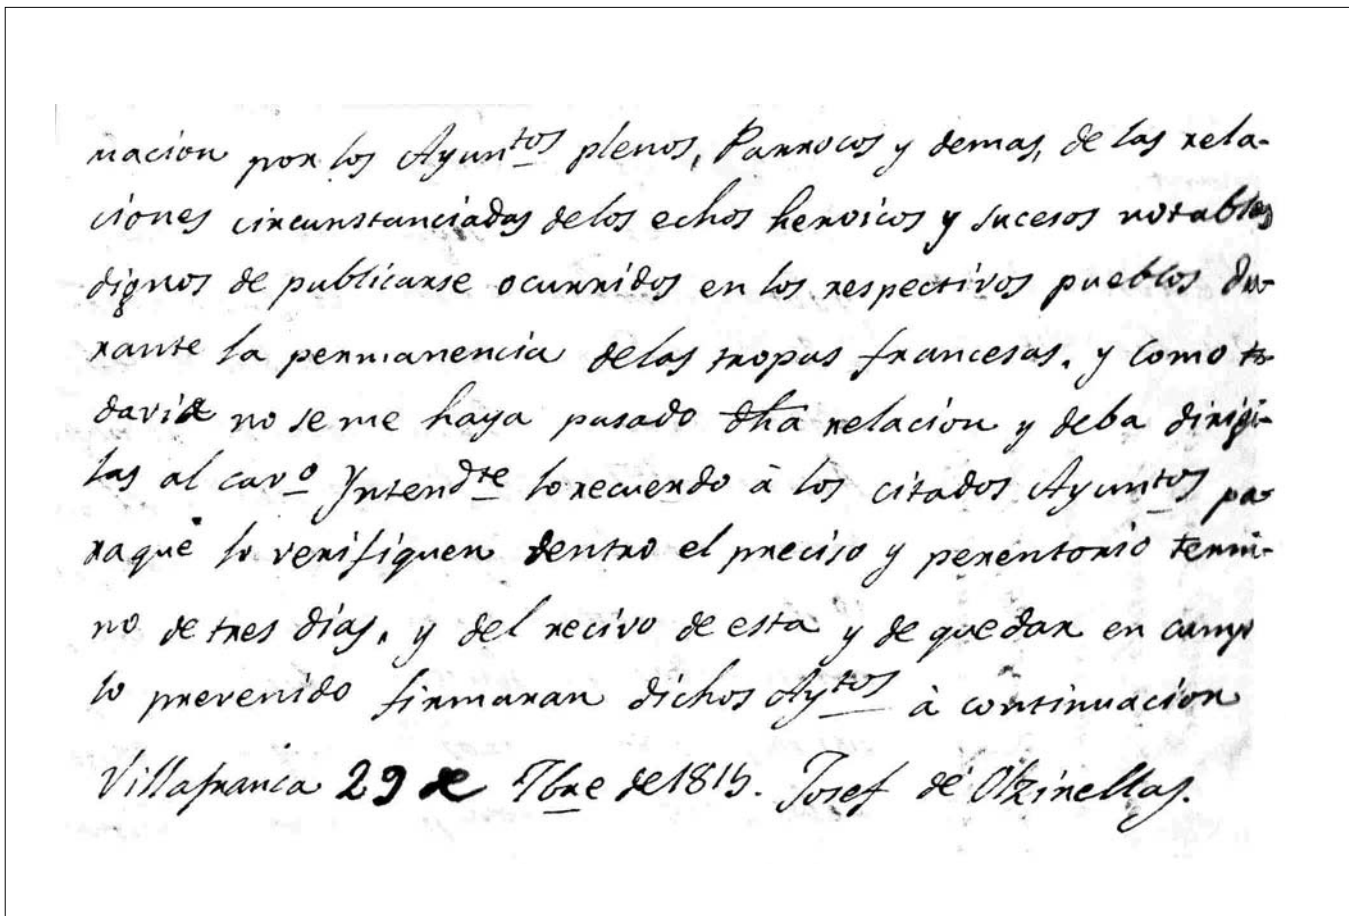 macion por los Ayuntos plenos, Parrocos y demas, de las rela-
ciones circunstanciadas delos echos heroicos y sucesos notables
dignos de publicarse ocurridos en los respectivos pueblos du-
rante la permanencia delas tropas francesas. y como to-
davia no se me haya pasado dha relacion y deba dirigir-
las al cavo Yntendte lo recuerdo à los citados Ayuntos pa-
raque lo verifiquen dentro el preciso y perentorio termi-
no de tres dias, y del recivo de esta y de quedar en cump
lo prevenido firmaran dichos Aytos à continuacion
Villafranca 29 de 7bre de 1815. Josef de Olzinellas.